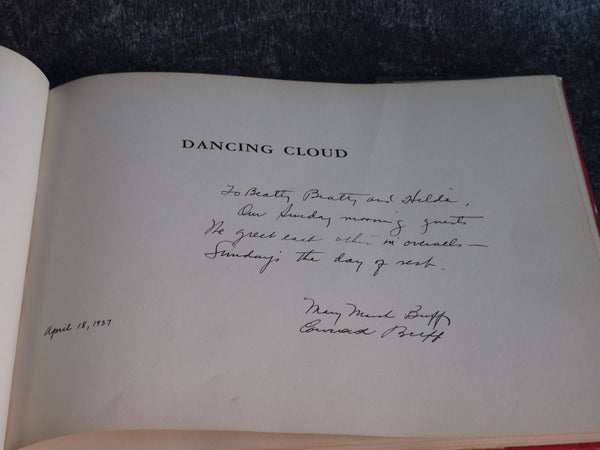 DANCING CLOUD
To Beatty Beatty and Hilda,
Our Sunday morning guests
We greet each other in overalls —
Sunday's the day of rest.
Mary Marsh Buff
Conrad Buff
April 18, 1937